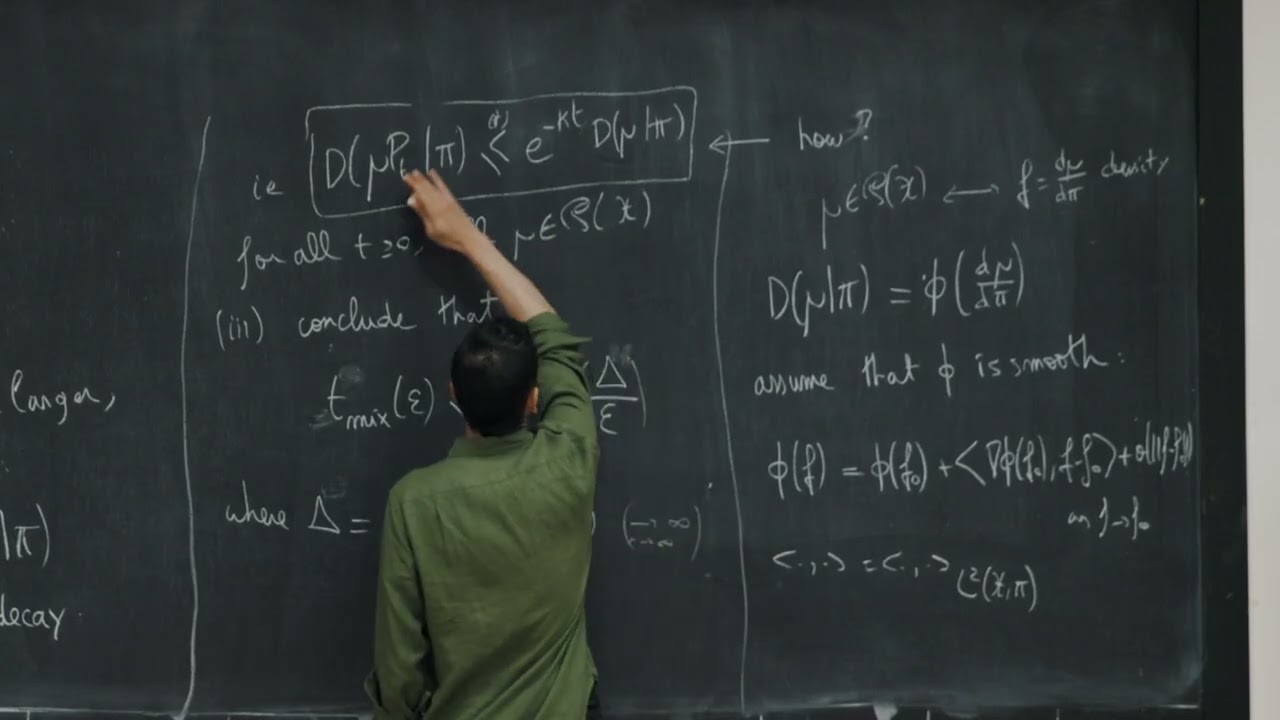 larger,
|π)
decay
ie D(μP_t|π) ≤^(*) e^{-κt} D(μ|π) ← how?
for all t≥0, μ∈𝒫(𝒳)
(iii) conclude that
t_mix(ε) ≤ Δ/ε)
where Δ = (→ ∞)
μ∈𝒫(𝒳) ⟷ f = dμ/dπ density
D(μ|π) = ϕ(dμ/dπ)
assume that ϕ is smooth:
ϕ(f) = ϕ(f₀) + <∇ϕ(f₀), f-f₀> + o(||f-f₀||)
as f→f₀
<·,·> = <·,·>_{L²(𝒳,π)}